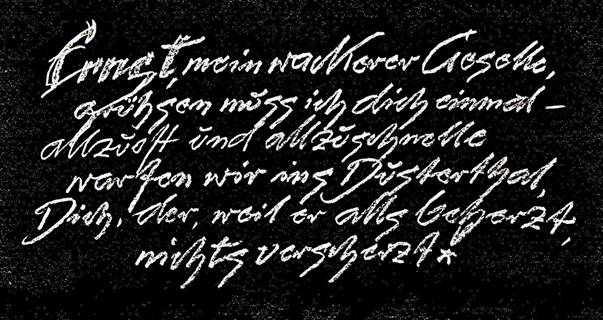 Ernst, mein wackerer Geselle,
grüssen mŭss ich dich einmal –
allzŭoft ŭnd allzŭschnelle
warfen wir ins Düsterthal,
Dich, der, weil er alls beherzt,
nichts verscherzt*